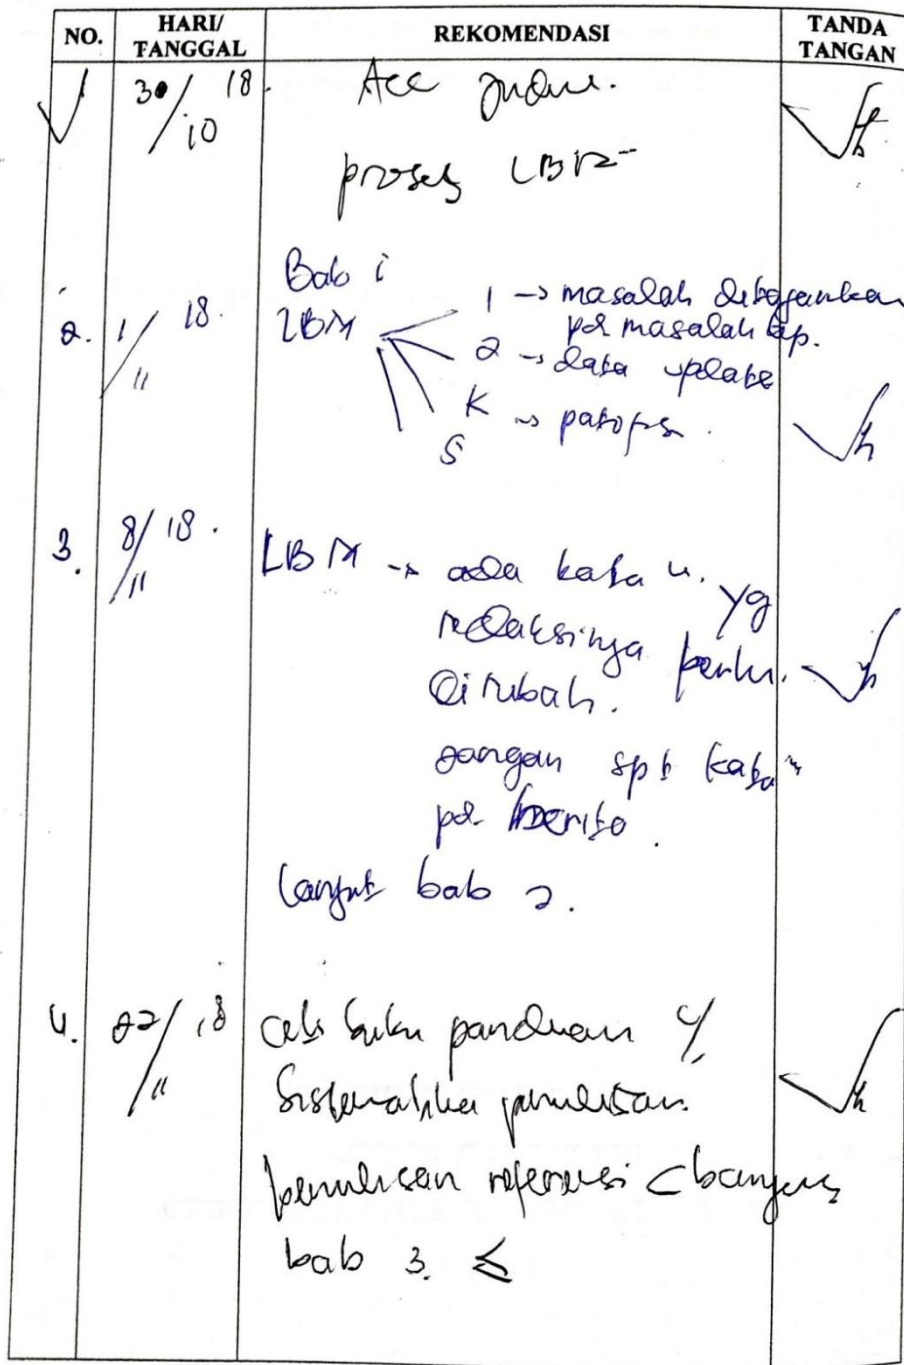 NO. HARI/ TANGGAL REKOMENDASI TANDA TANGAN
1 30/10 18. Acc
proses LBM
2. 1/11 18. Bab i
LBM 1 → masalah
pd masalah
2 → data update
K → patofis.
S
3. 8/11 18. LBM → ada kata u. yg
redaksinya perlu.
Di rubah.
jangan spt kata"
pd berita.
Lanjut bab 2.
4. 22/11 18 cek buku panduan u/
Sistematika penulisan.
penulisan referensi
bab 3.